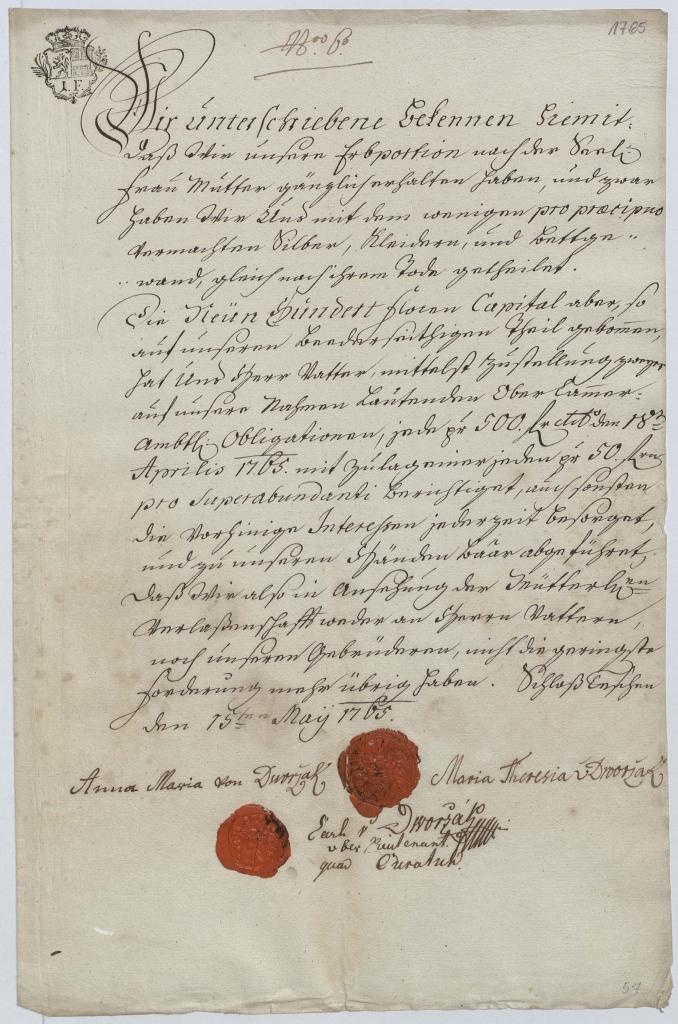 1765
N.ro 6.
I. F.
Wir unterschriebene bekennen hiemit:
daß wir unsere Erbportion nach der Seel:
Frau Mutter gänzlich erhalten haben, und zwar
haben wir Uns mit dem wenigen pro præcipuo
vermachten Silber, Kleidern, und Bettge„
„wand, gleich nach ihrem Tode getheilet.
Die Neün Hündert Floren Capital aber, so
auf unseren beederseithigen Theil gekommen,
hat Uns Herr Vatter, mittelst Zustellung zweyer
auf unsere Nahmen lautenden Ober Cammer:
Ambtl: Obligationen, jede pr 500. den 18
Aprilis 1765. mit Zulag einer jeden pr 50.
pro Superabundanti berichtiget, auch sonsten
die vorhinige Interessen jederzeit besorget,
und zu unseren Händen baar abgeführet.
daß wir also in Ansehung der Mütterlichen
Verlaßenschafft weder an Herrn Vattern,
noch unseren Gebrüderen, nicht die geringste
Forderung mehr übrig haben. Schloß Teschen
den 15ten Maÿ 1765.
Anna Maria von Dworžak
Maria Theresia v Dworžak
Carl v Dworžák
ober Lieutenant
quad Curator.
57